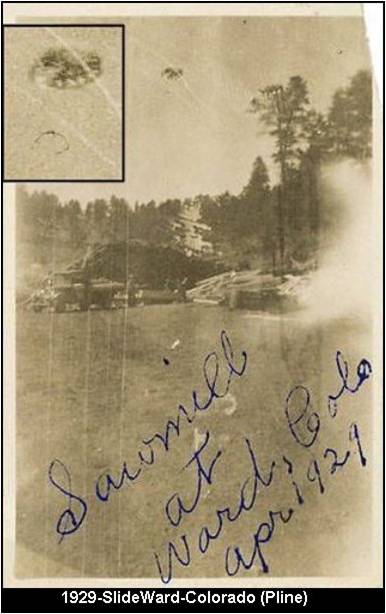 Sawmill
at
Ward, Colo
apr 1929
1929-SlideWard-Colorado (Pline)